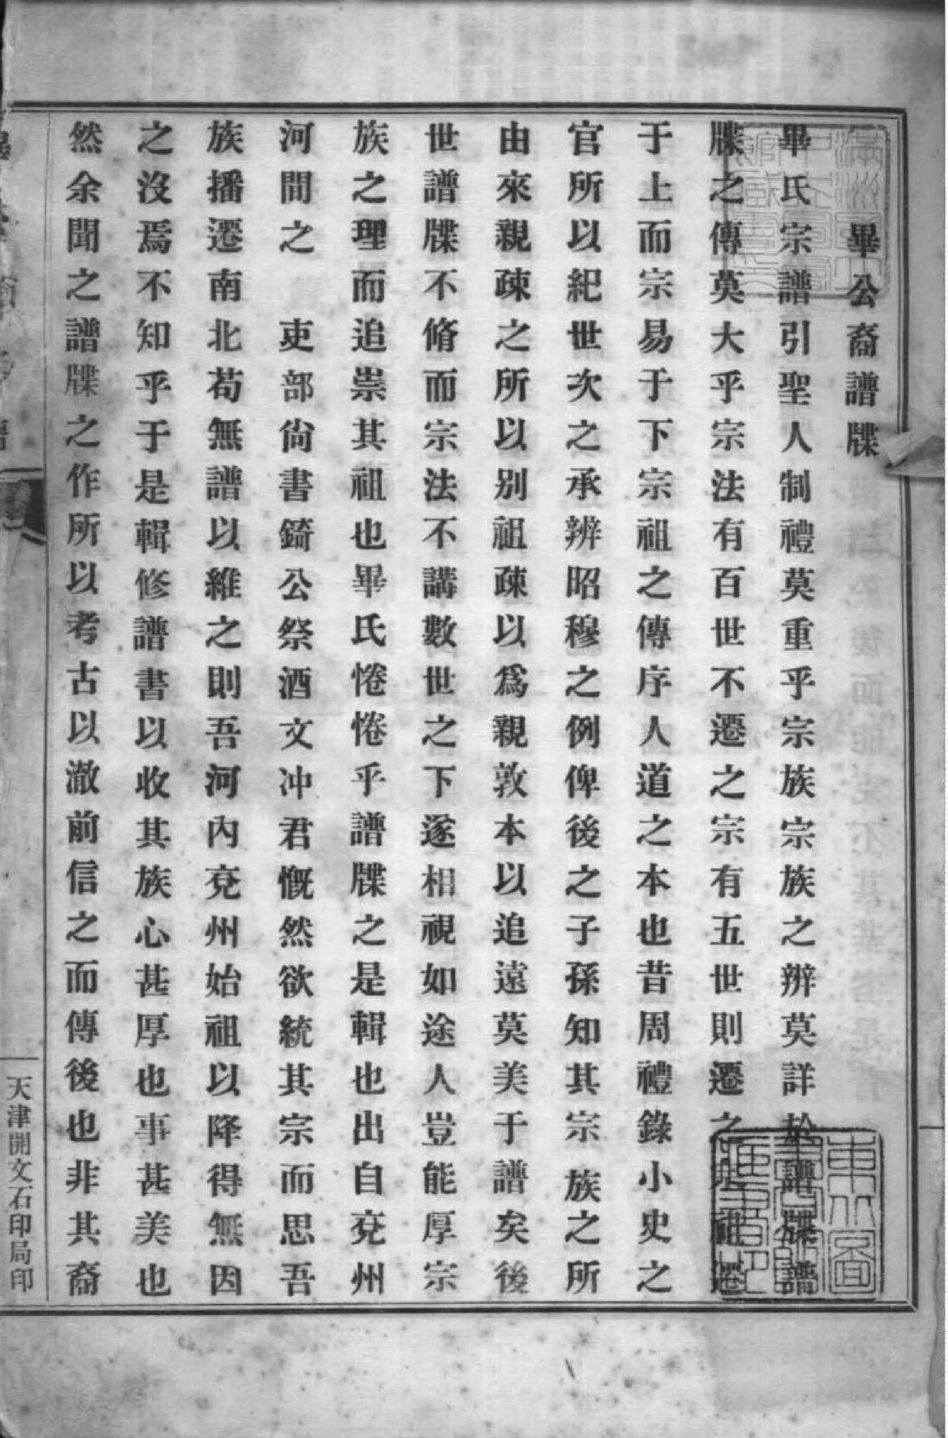 畢公裔譜牒
畢氏宗譜引聖人制禮莫重乎宗族宗族之辨莫詳於譜牒譜
牒之傳莫大乎宗法有百世不遷之宗有五世則遷之宗祖遷
于上而宗易于下宗祖之傳序人道之本也昔周禮錄小史之
官所以紀世次之承辨昭穆之例俾後之子孫知其宗族之所
由來親疎之所以別祖疎以爲親敦本以追遠莫美于譜矣後
世譜牒不脩而宗法不講數世之下遂相視如途人豈能厚宗
族之理而追崇其祖也畢氏惓惓乎譜牒之是輯也出自兗州
河間之 吏部尙書錡公祭酒文冲君慨然欲統其宗而思吾
族播遷南北苟無譜以維之則吾河內兗州始祖以降得無因
之沒焉不知乎于是輯修譜書以收其族心甚厚也事甚美也
然余聞之譜牒之作所以考古以澈前信之而傳後也非其裔
天津開文石印局印